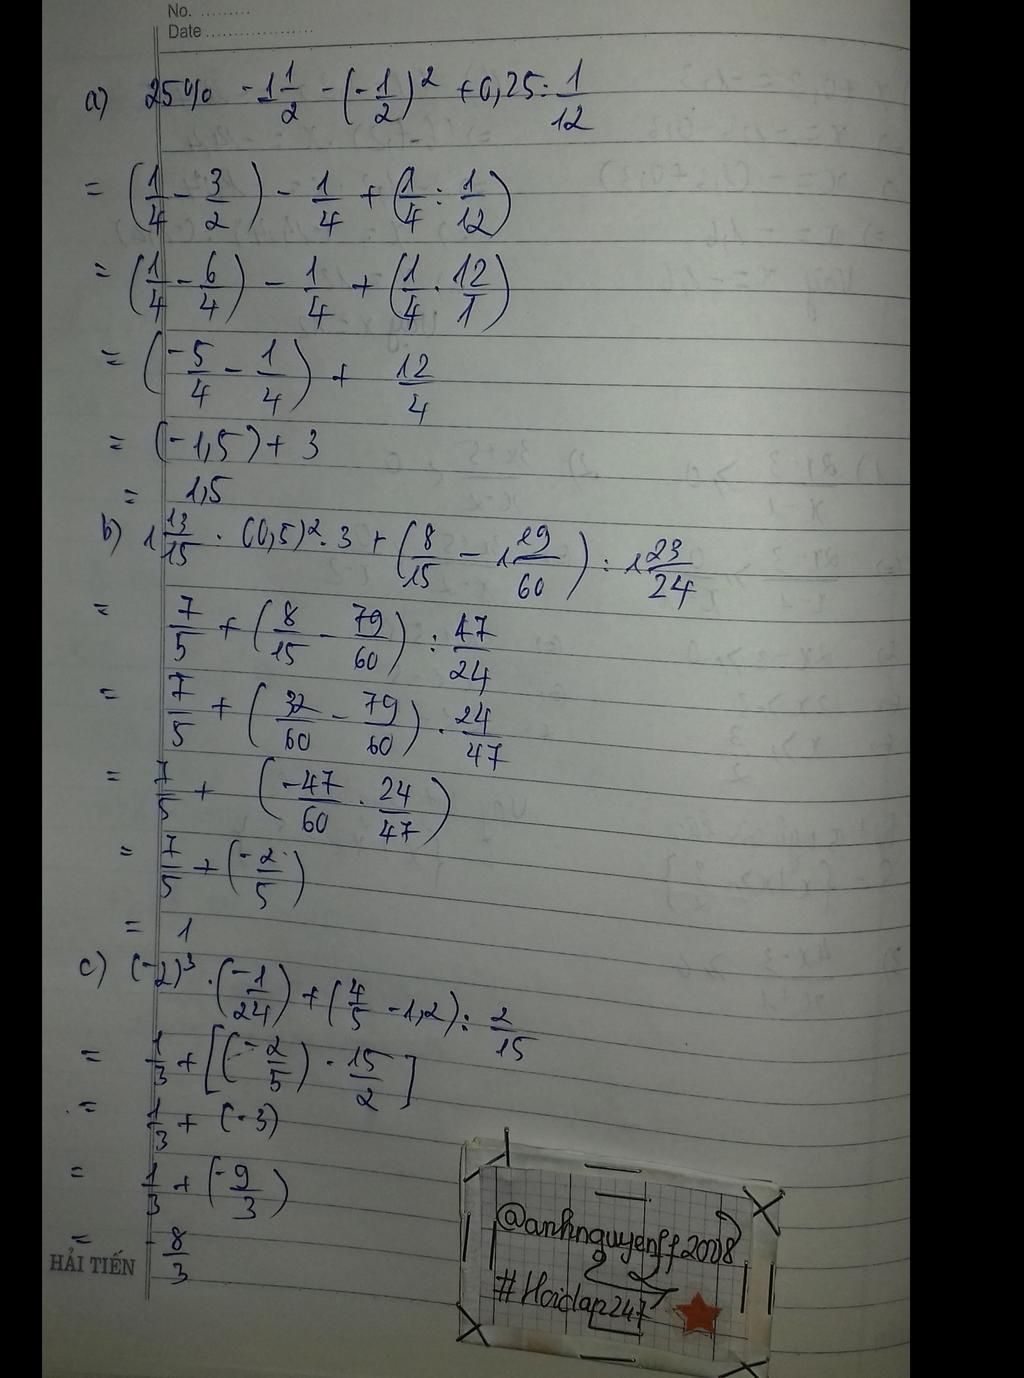 No. .........
Date ...................
a) 25% - 1 1/2 - (-1/2)^2 + 0,25 : 1/12
= (1/4 - 3/2) - 1/4 + (1/4 : 1/12)
= (1/4 - 6/4) - 1/4 + (1/4 . 12/1)
= (-5/4 - 1/4) + 12/4
= (-1,5) + 3
= 1,5
b) 1 13/15 . (0,5)^2 . 3 + (8/15 - 1 19/60) : 1 23/24
= 7/5 + (8/15 - 79/60) : 47/24
= 7/5 + (32/60 - 79/60) . 24/47
= 7/5 + (-47/60 . 24/47)
= 7/5 + (-2/5)
= 1
c) (-2)^3 . (-1/24) + (4/5 - 1,2) : 2/15
= 1/3 + [(-2/5) . 15/2]
= 1/3 + (-3)
= 1/3 + (-9/3)
= -8/3
HẢI TIẾN
@anhnguyenff2008
#Hoidap247